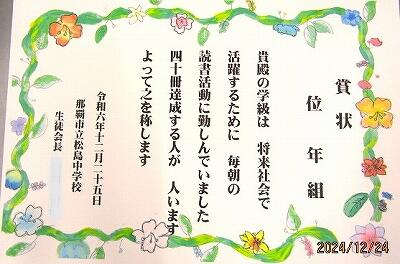 賞状
位 年 組
貴殿の学級は 将来社会で
活躍するために 毎朝の
読書活動に勤しんでいました
四十冊達成する人が 人います
よって之を称します
令和六年十二月二十五日
那覇市立松島中学校
生徒会長
2024/12/24